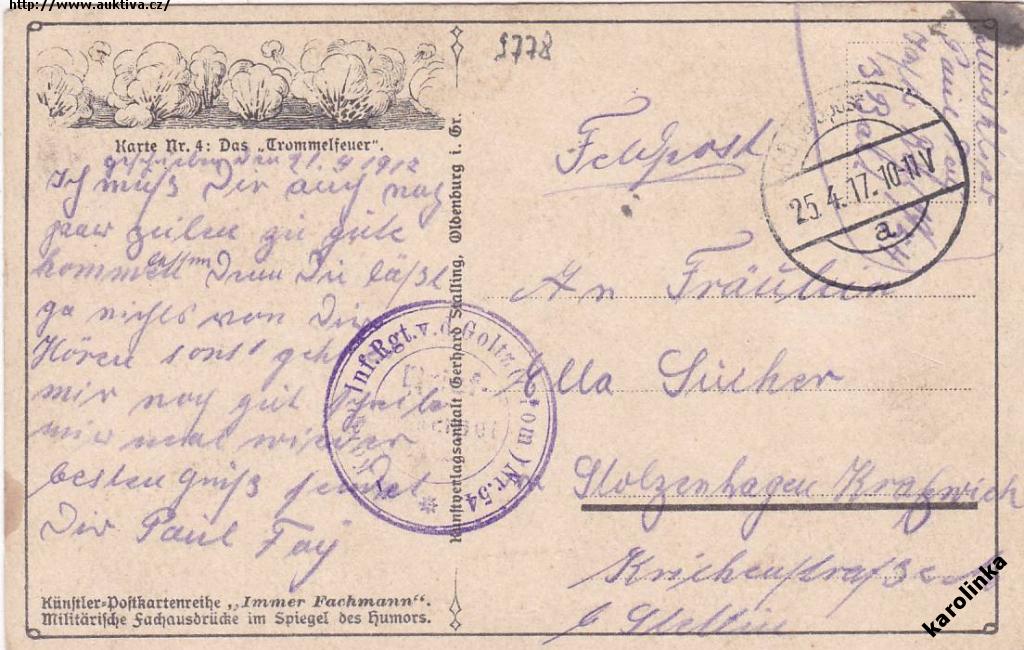 http://www.auktiva.cz/
5778
Karte Nr. 4: Das „Trommelfeuer“.
geschrieben den 21.4 1917
Ich muß Dir auch noch
paar zeilen zu gute
kommen lassen Denn Du läßt
ga nichts von Dir
Hören sonst geht
mir noch gut
mir mal wieder
besten Gruß sendet
Dir Paul Fay
Künstler-Postkartenreihe „Immer Fachmann“.
Militärische Fachausdrücke im Spiegel des Humors.
Kunstverlagsanstalt Gerhard Stalling, Oldenburg i. Gr.
Inf. Rgt. v. d. Goltz (Pom) Nr. 54
Feldpost
25.4.17. 10-11 V
a
An Fräulein
Ella Sücher
Stolzenhagen Kratzwieck
b Stettin
karolinka